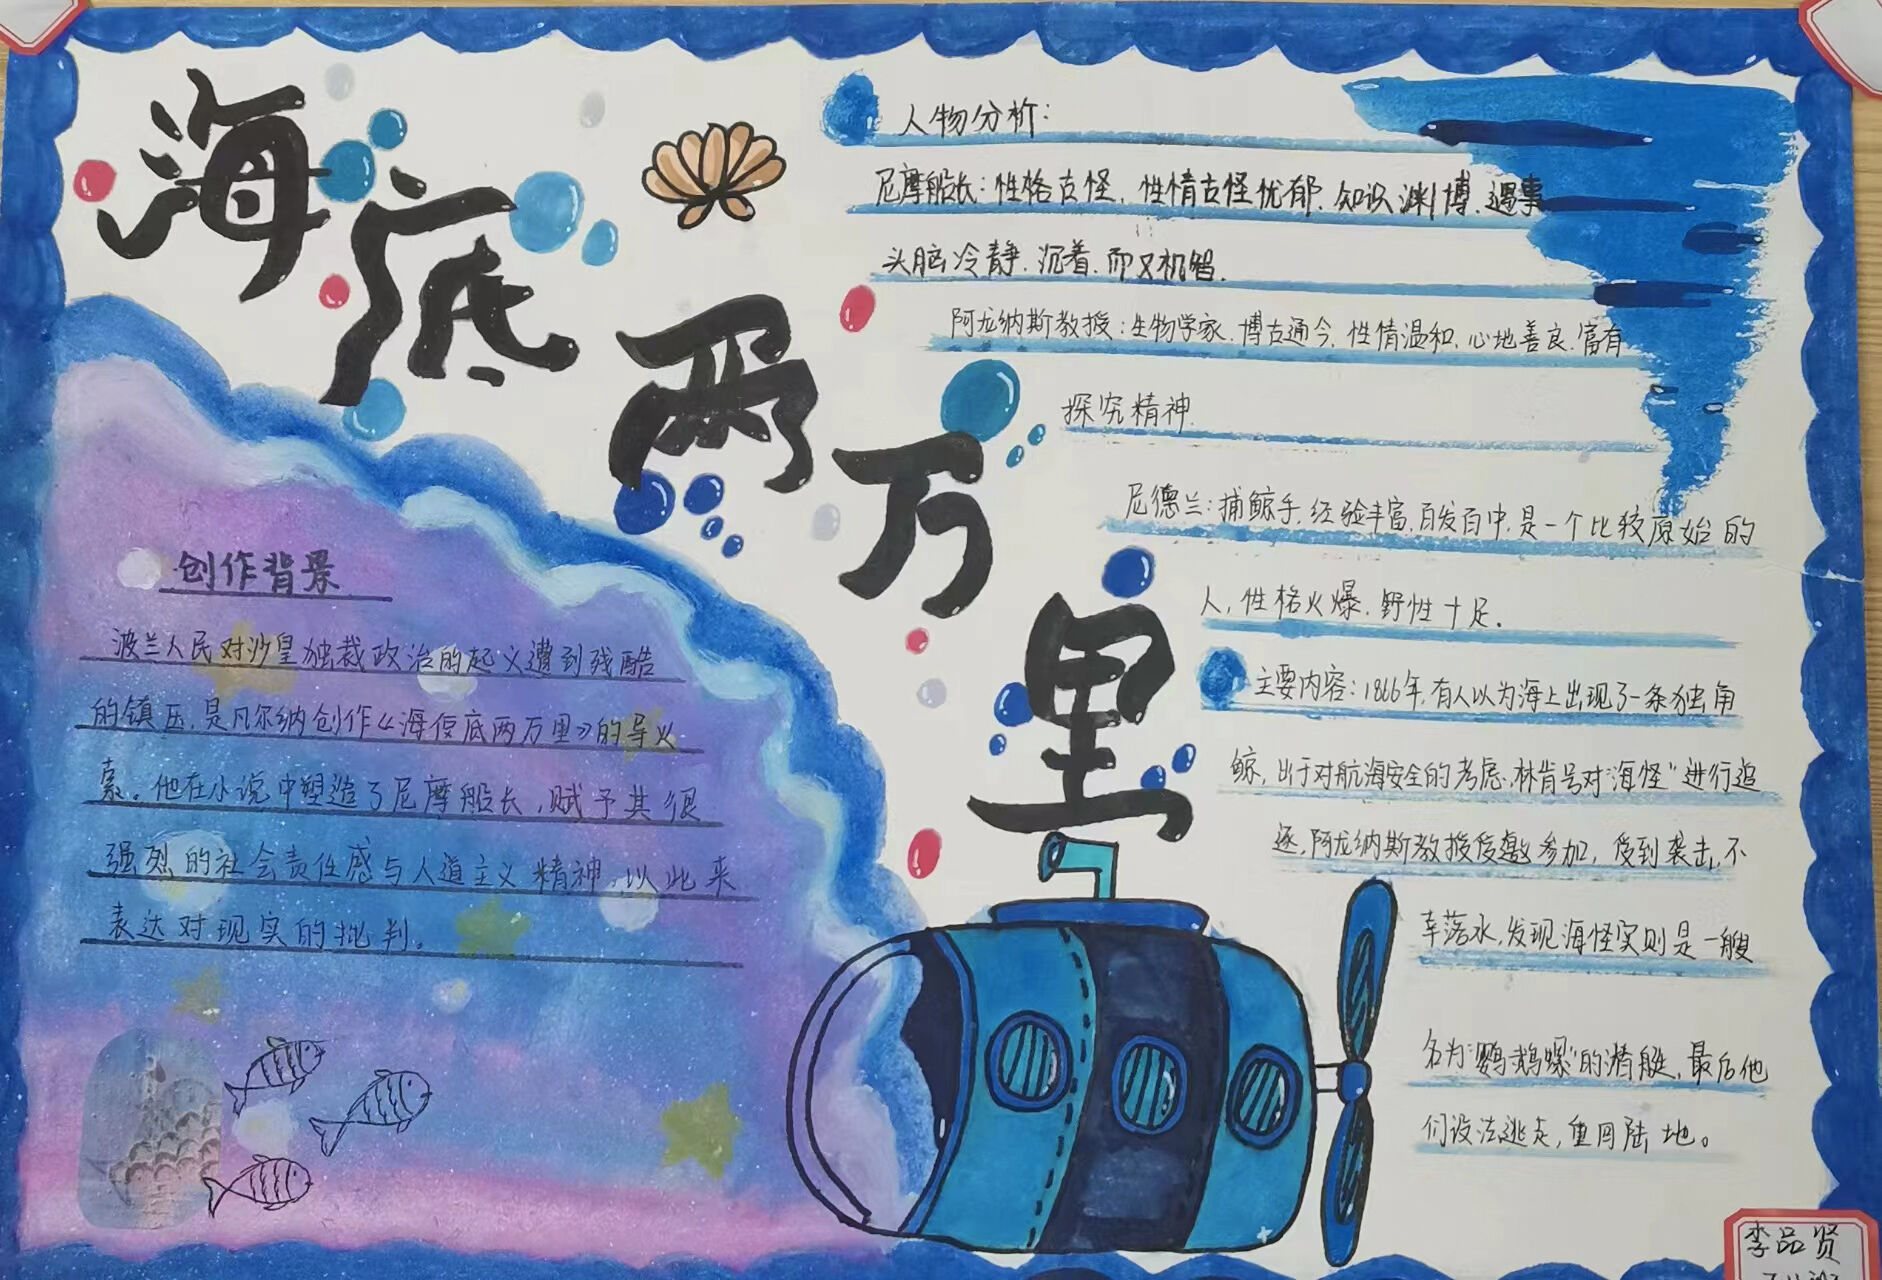 海底两万里
人物分析：
尼摩船长：性格古怪，性情古怪忧郁、知识渊博、遇事
头脑冷静、沉着、而又机智.
阿龙纳斯教授：生物学家、博古通今，性情温和，心地善良、富有
探究精神.
尼德兰：捕鲸手，经验丰富，百发百中，是一个比较原始的
人，性格火爆，野性十足.
主要内容：1866年，有人以为海上出现了一条独角
鲸，出于对航海安全的考虑，林肯号对“海怪”进行追
逐，阿龙纳斯教授受邀参加，受到袭击，不
幸落水，发现海怪实则是一艘
名为“鹦鹉螺”的潜艇，最后他
们设法逃走，重回陆地。
创作背景
波兰人民对沙皇独裁政治的起义遭到残酷
的镇压，是凡尔纳创作《海底两万里》的导火
索。他在小说中塑造了尼摩船长，赋予其很
强烈的社会责任感与人道主义精神，以此来
表达对现实的批判。
李品贤